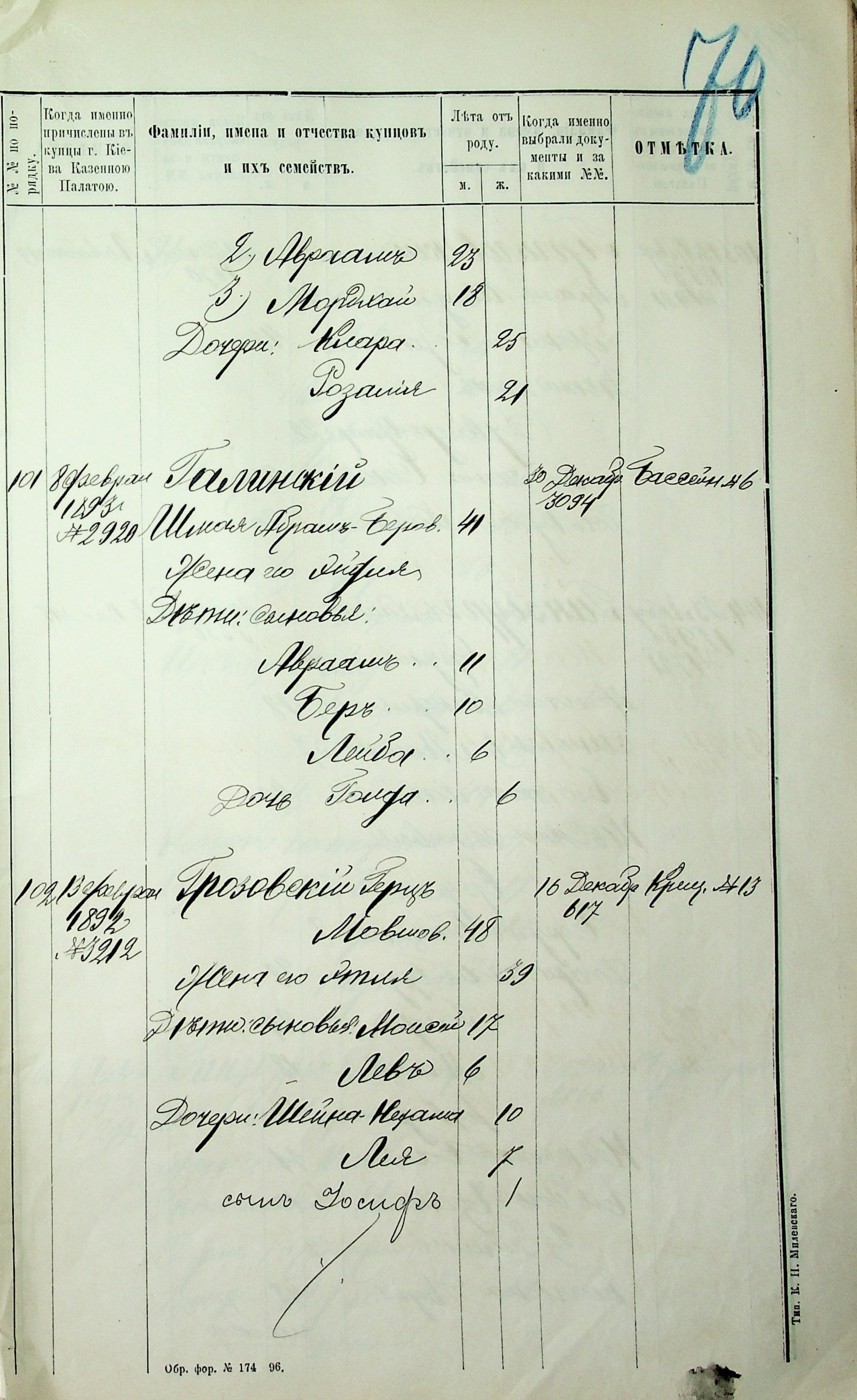 70
№ № по по-
рядку.
Когда именно
причислены въ
купцы г. Кіе-
ва Казенною
Палатою.
Фамиліи, имена и отчества купцовъ
и ихъ семействъ.
Лѣта отъ
роду.
м.
ж.
Когда именно
выбрали доку-
менты и за
какими №№.
ОТМѢТКА.
2) Авраамъ 23
3) Мордхай 18
Дочери: Клара 25
Розалія 21
101 8 феврал Галинскій 30 Декабр Бассейн. №6
1893 3094
№2920 Шмая Абрамъ-Беров. 41
Жена его
Дѣти: сыновья:
Авраамъ 11
Беръ 10
Лейба 6
Дочь Голда 6
102 13 феврал Грозовскій Герцъ 16 Декабр Крещ. №13
1892 617
№3212 Мовшов. 48
Жена его Этля 39
Дѣти: сыновья: Моисей 17
Левъ 6
Дочери: Шейна-Нехама 10
Лея 7
сынъ Іосифъ 1
Обр. фор. № 174 96.
Тип. К. Н. Милевскаго.